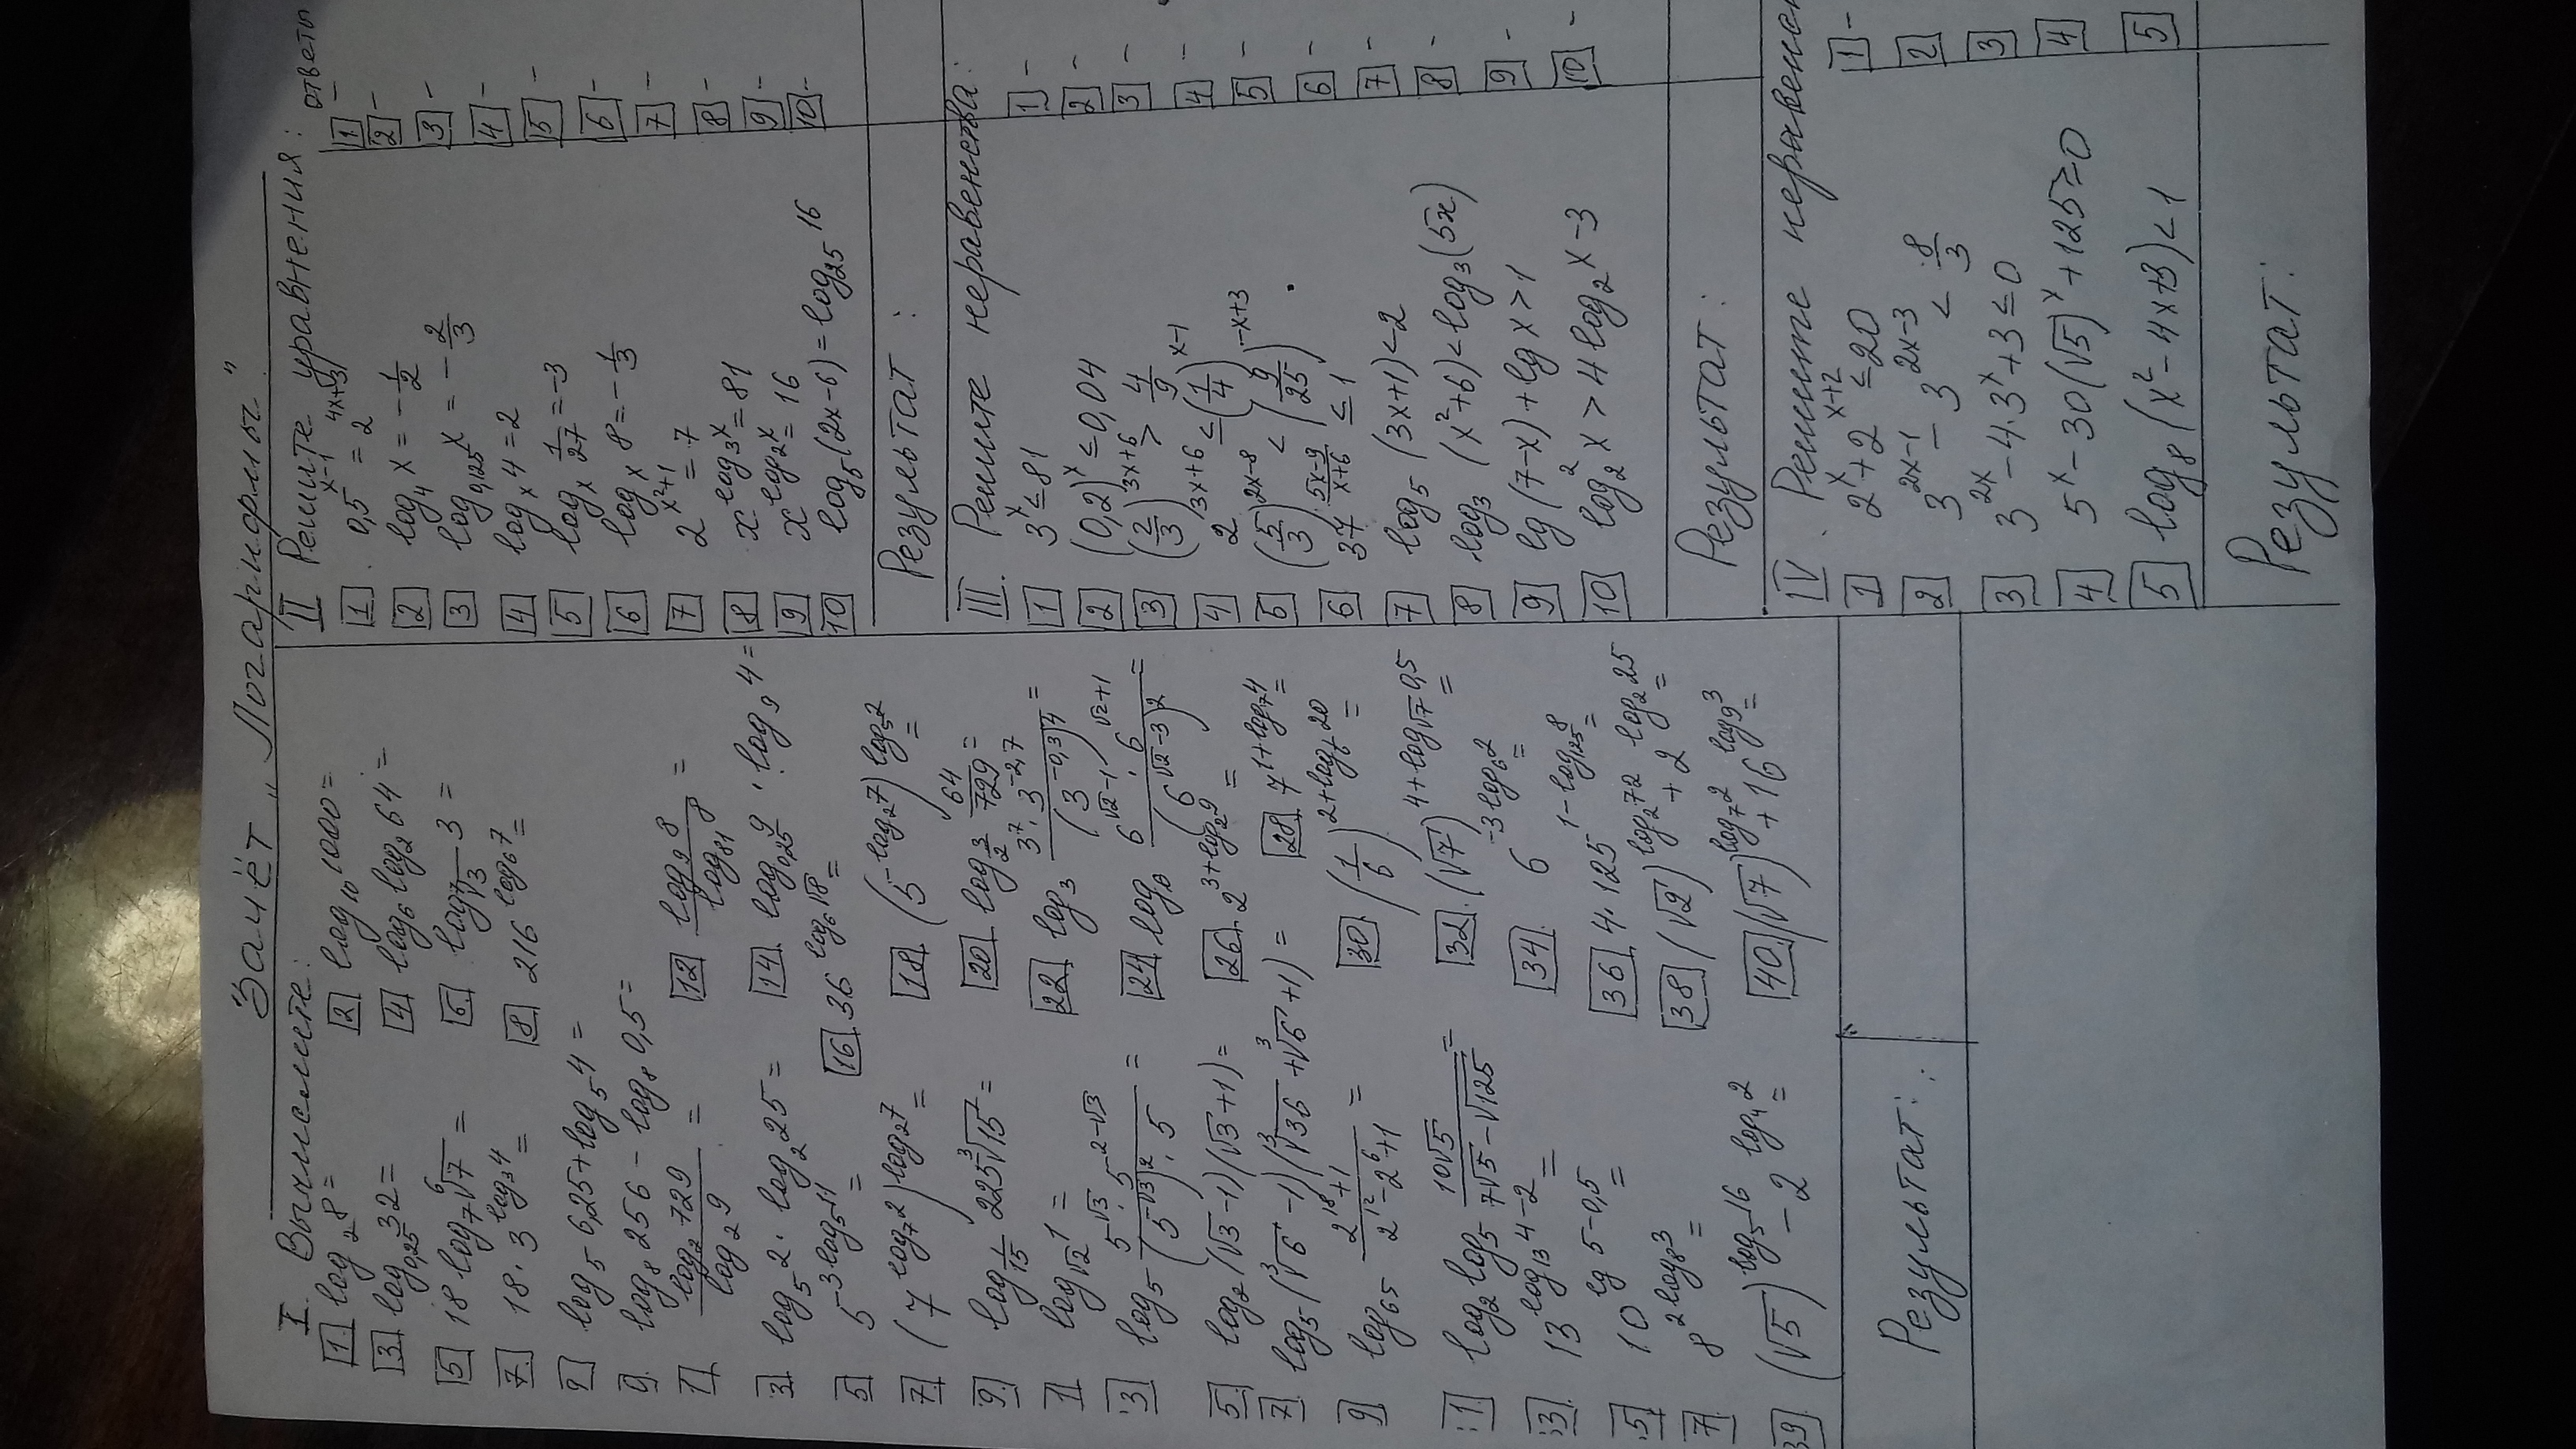 Зачёт „Логарифмы"
I. Вычислите:
1. log₂ 8 =
2 log₁₀ 1000 =
3. log₀,₂₅ 32 =
4 log₆ log₂ 64 =
5 18 log₇ ⁶√7 =
6 3 =
7. 18 · 3^(log₃ 4) =
8 216^(log₆ 7) =
9 log₅ 6,25 + log₅ 4 =
0. log₈ 256 − log₈ 0,5 =
1 log₂ 729 / log₂ 9 =
12 log₉ 8 / log₈₁ 8 =
3 log₅ 2 · log₂ 25 =
14 log₀,₂₅ 9 · log₉ 4 =
5 5^(−3 log₅ 11) =
16 36^(log₆ √18) =
7 (7^(log₇ 2))^(log₂ 7) =
18 (5^(−log₂ 7))^(log₅ 2) =
9. log_(1/15) 225 ³√15 =
20 log_(3/2) 64/729 =
1 log_√2 1 =
22 log₃ (3⁷ · 3^(−2,7)) / (3^(−0,3))⁴ =
3 log₅ (5^(−√3) · 5^(2−√3)) / ((5^(−√3))² · 5) =
24 log₆ (6^(√2−1) · 6^(√2+1)) / (6^(√2−3))² =
5. log₂ (√3 − 1)(√3 + 1) =
26. 2^(3+log₂ 9) =
7. log₅ (³√6 − 1)(³√36 + ³√6 + 1) =
28 7^(1+log₇ 4) =
9 log₆₅ (2¹⁸ + 1) / (2¹² − 2⁶ + 1) =
30 (1/6)^(2+log₆ 20) =
1. log₂ log₅ 10√5 / (7√5 − √125) =
32. (√7)^(4+log_√7 0,5) =
3. 13^(log₁₃ 4 − 2) =
34. 6^(−3 log₆ 2) =
5. 10^(lg 5 − 0,5) =
36 4 · 125^(1−log₁₂₅ 8) =
7. 8^(2 log₈ 3) =
38 (√2)^(log₂ 72) + 2^(log₂ 25) =
39 (√5)^(log₅ 16) − 2^(log₄ 2) =
40 (√7)^(log₇ 2) + 16^(log₉ 3) =
Результат:
II Решите уравнения: ответы
1. 0,5^(x−1) = 2^(4x+3) 1 –
2 log₄ x = −1/2 2 –
3 log₀,₁₂₅ x = −2/3 3 –
4 logₓ 4 = 2 4 –
5 logₓ 1/27 = −3 5 –
6 logₓ 8 = −1/3 6 –
7 2^(x²+1) = 7 7 –
8 x^(log₃ x) = 81 8 –
9 x^(log₂ x) = 16 9 –
10 log₅ (2x − 6) = log₂₅ 16 10 –
Результат:
III. Решите неравенства:
1 3ˣ ≤ 81 1 –
2 (0,2)ˣ ≤ 0,04 2 –
3 (2/3)^(3x+6) > 4/9 3 –
4 2^(3x+6) ≤ (1/4)^(x−1) 4 –
5 (5/3)^(2x−8) < (9/25)^(−x+3) 5 –
6 37^((5x−9)/(x+6)) ≤ 1 6 –
7 log₅ (3x + 1) < 2 7 –
8 log₃ (x² + 6) < log₃ (5x) 8 –
9 lg (7 − x) + lg x > 1 9 –
10 log₂² x > 4 log₂ x − 3 10 –
Результат:
IV. Решите
1 2ˣ + 2^(x+2) ≤ 20 1 –
2 3^(2x−1) − 3^(2x−3) < 8/3 2
3 3^(2x) − 4 · 3ˣ + 3 ≤ 0 3
4 5ˣ − 30 (√5)ˣ + 125 ≥ 0 4
5 log₈ (x² − 4x + 3) < 1 5
Результат: